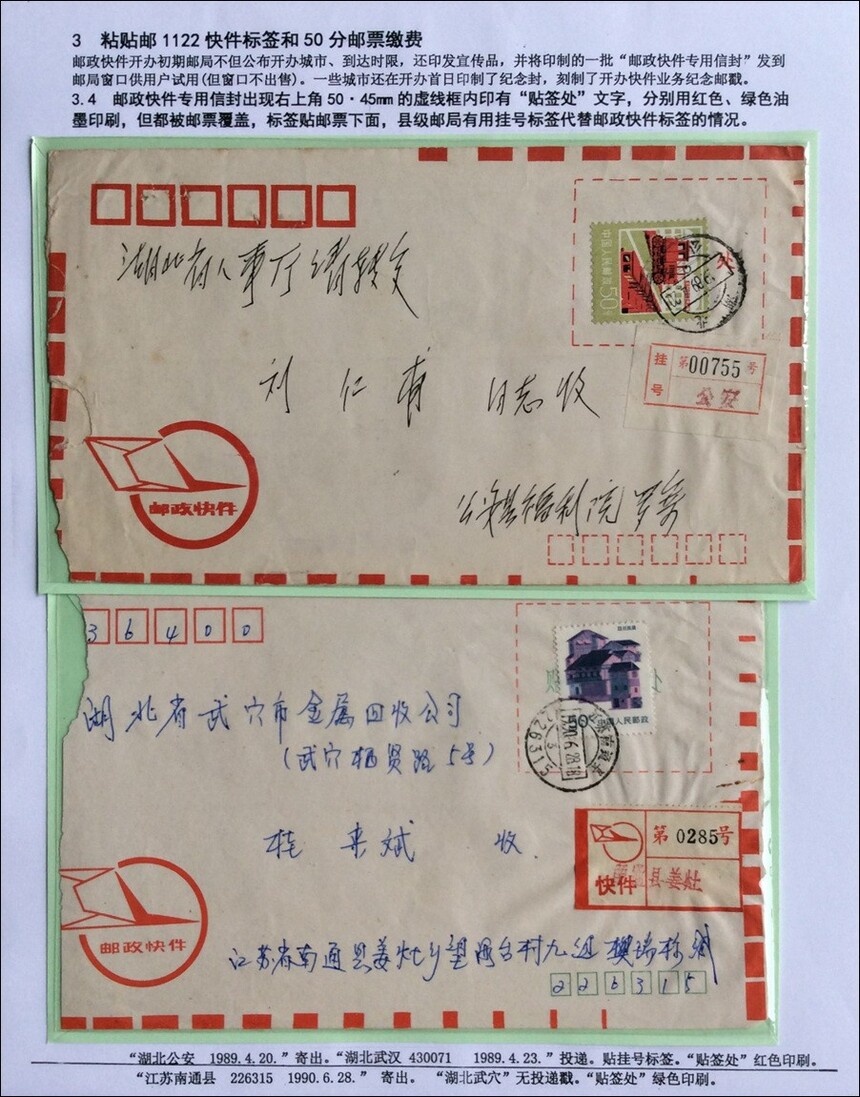 3 粘贴邮1122快件标签和50分邮票缴费
邮政快件开办初期邮局不但公布开办城市、到达时限，还印发宣传品，并将印制的一批“邮政快件专用信封”发到
邮局窗口供用户试用(但窗口不出售)。一些城市还在开办首日印制了纪念封，刻制了开办快件业务纪念邮戳。
3.4 邮政快件专用信封出现右上角50·45mm的虚线框内印有“贴签处”文字，分别用红色、绿色油
墨印刷，但都被邮票覆盖，标签贴邮票下面，县级邮局有用挂号标签代替邮政快件标签的情况。
中国人民邮政
50分
处
湖北省人事厅请转交
挂号
第00755号
公安
刘仁甫 同志收
邮政快件
公安县福利院罗
36400
贴
50
中国人民邮政
湖北省武穴市金属回收公司
(武穴栖贤路5号)
226315
1990.6.28.18
桂来斌 收
第0285号
快件
南通县姜灶
邮政快件
江苏省南通县姜灶乡望海台村九组樊瑞栋
226315
“湖北公安 1989.4.20.”寄出。“湖北武汉 430071 1989.4.23.”投递。贴挂号标签。“贴签处”红色印刷。
“江苏南通县 226315 1990.6.28.” 寄出。 “湖北武穴”无投递戳。“贴签处”绿色印刷。